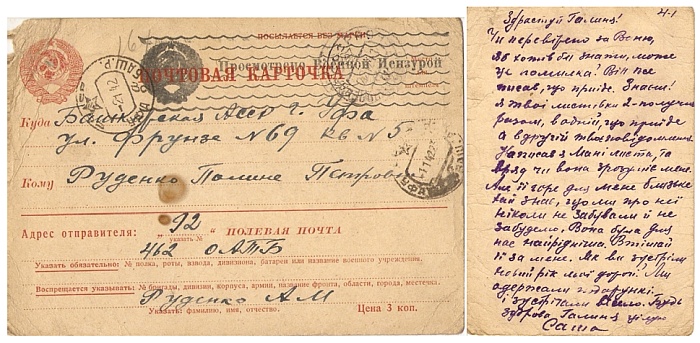 ПОСЫЛАЕТСЯ БЕЗ МАРКИ
Просмотрено Военной Цензурой
ПОЧТОВАЯ КАРТОЧКА
Куда Башкирская Асср г. Уфа
ул. Фрунзе №69 кв №5
Кому Руденко Галине Петровне
Адрес отправителя: „92“ ПОЛЕВАЯ ПОЧТА
указать №
462 оАТБ
Указать обязательно: № полка, роты, взвода, дивизиона, батареи или название военного учреждения.
Воспрещается указывать: № бригады, дивизии, корпуса, армии, название фронта, области, города, местечка.
Руденко А М
Указать: фамилию, имя, отчество.
Цена 3 коп.
4-1
Здрастуй Галина!
Чи перевірено за Веню,
бо хотів би знати, може
це помилка? Він же
писав, що приїде. Знаєш!
я твої листівки 2 получив
разом, в одній, що приїде
а в другій твоє повідомлення.
Написав я Мані листа, та
вряд чи вона зрозуміє мене.
Але її горе для мене близьке
хай знає, що ми про неї
ніколи не забували й не
забудемо. Вона була для
нас найрідніша. Втішай
її за мене. Як ви зустріли
новий рік мої дорогі! Ми
одержали подарунки
і зустріли весело. Будь
здорова Галина цілую
Саша